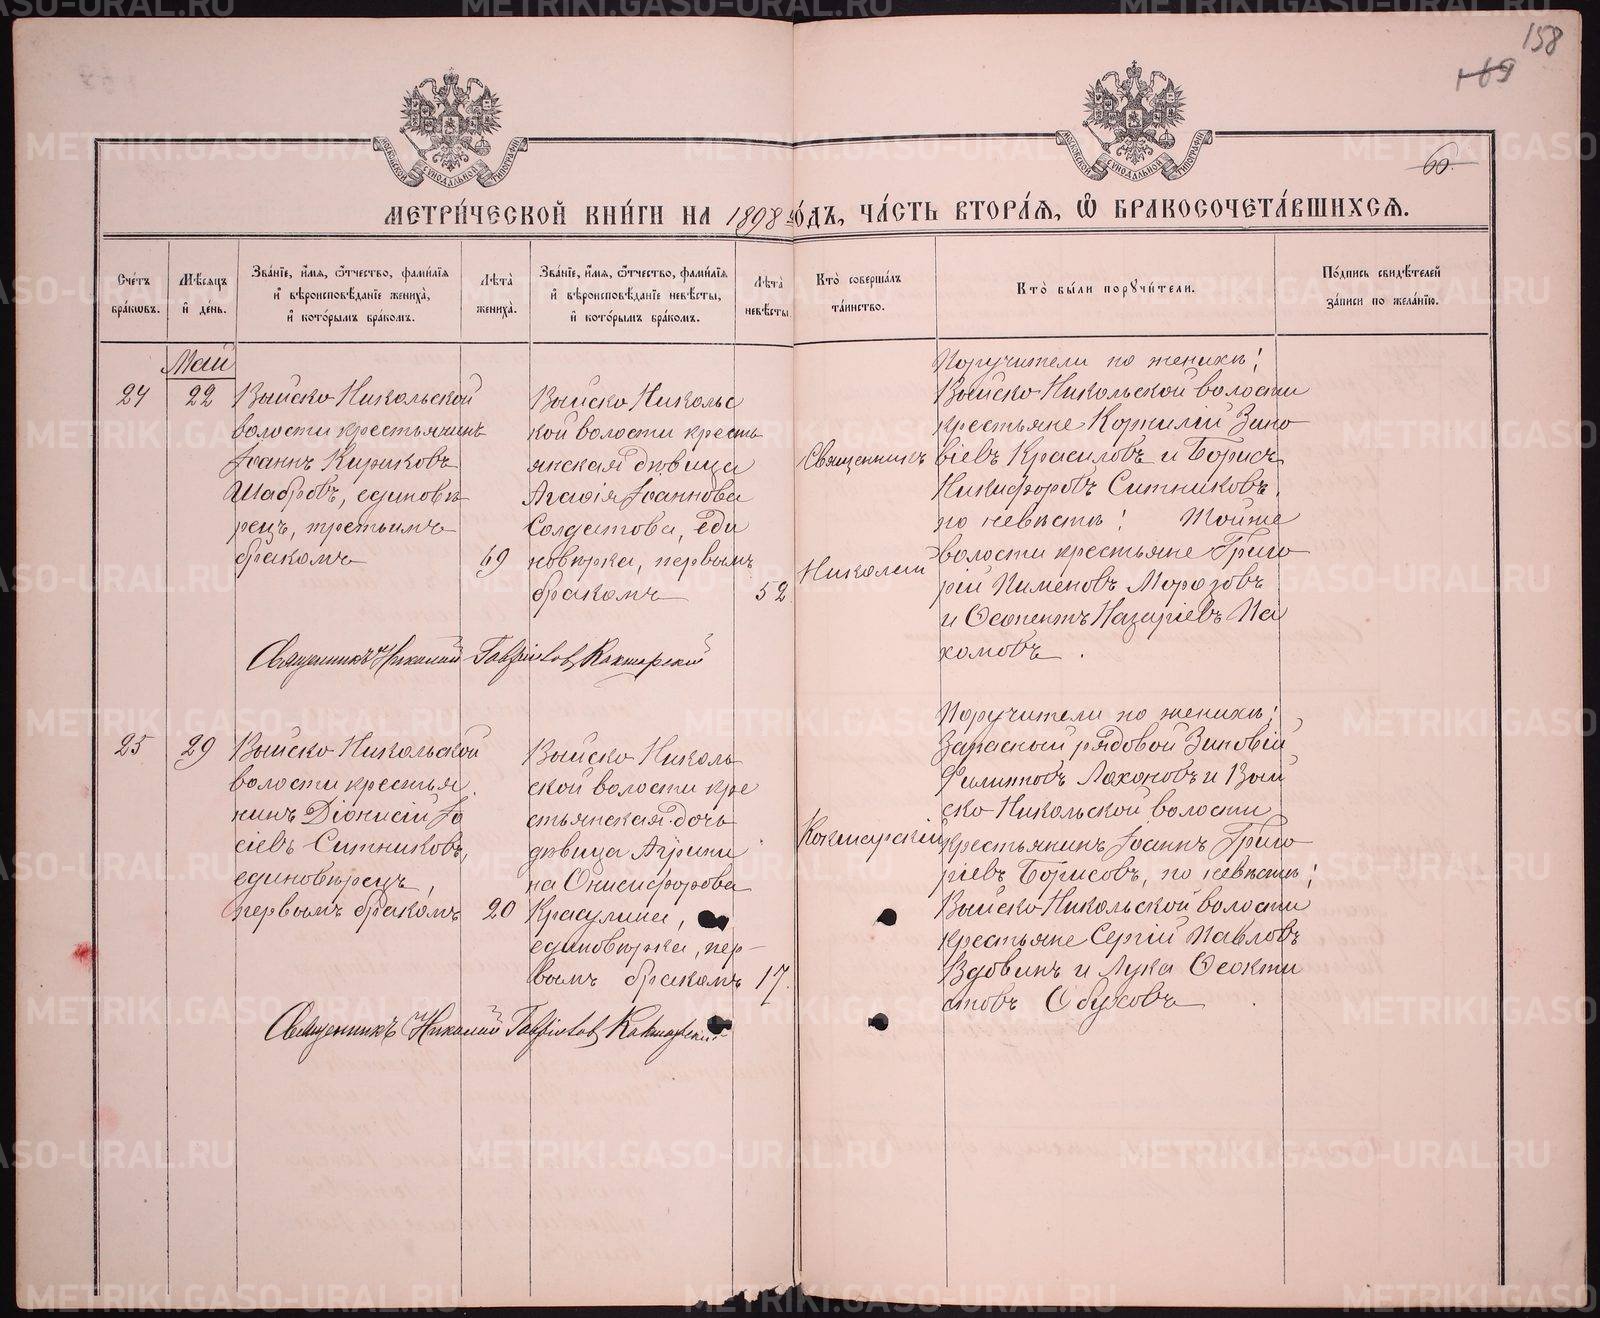 158
169
МОСКОВСКОЙ СѴНОДАЛЬНОЙ ТИПОГРАФІИ
МОСКОВСКОЙ СѴНОДАЛЬНОЙ ТИПОГРАФІИ
66.
МЕТРИ́ЧЕСКОЙ КНИ́ГИ НА 1898 го́дъ, ЧА́СТЬ ВТОРА́Я, Ѽ БРАКОСОЧЕТА́ВШИХСЯ.
Сче́тъ
бра́кѡвъ.
Мѣ́сяцъ
и҆ де́нь.
Зва́нїе, и҆́мя, ѻ҆́тчество, фами́лїя
и҆ вѣроисповѣ́данїе жениха̀,
и҆ кото́рымъ бра́комъ.
Лѣ́та̀
жениха̀.
Зва́нїе, и҆́мя, ѻ҆́тчество, фами́лїя
и҆ вѣроисповѣ́данїе невѣ́сты,
и҆ кото́рымъ бра́комъ.
Лѣ́та̀
невѣ́сты.
Кто̀ соверша́лъ
та́инство.
Кто̀ бы́ли порꙋчи́тели.
По́дпись свидѣ́телей
за́писи по жела́нїю.
Май
24
22
Выйско Никольской
волости крестьянинъ
Іоаннъ Кириковъ
Шабровъ, единовѣ
рецъ, третьимъ
бракомъ
69
Выйско Никольс
кой волости кресть
янская дѣвица
Агафія Іоаннова
Солдатова, еди
новѣрка, первымъ
бракомъ
52
Священникъ
Николай
Кокшарскій
Поручители по женихѣ:
Выйско Никольской волости
крестьяне Корнилій Зино
віевъ Красиловъ и Борисъ
Никифоровъ Ситниковъ,
по невѣстѣ: Тойже
волости крестьяне Григо
рій Пименовъ Морозовъ
и Ѳеопентъ Назаріевъ Па
хомовъ.
Священникъ Николай Гавріиловъ Кокшарскій
25
29
Выйско Никольской
волости крестья
нинъ Діонисій Іо
сіевъ Ситниковъ,
единовѣрецъ,
первымъ бракомъ
20
Выйско Николь
ской волости кре
стьянская дочь
дѣвица Агрипи
на Онисифорова
Красулина,
единовѣрка, пер-
вымъ бракомъ
17.
Поручители по женихѣ:
Запасный рядовой Зиновій
Филипповъ Лахоновъ и Вый
ско Никольской волости
крестьянинъ Іоаннъ Григо
ріевъ Борисовъ, по невѣстѣ:
Выйско Никольской волости
крестьяне Сергій Павловъ
Вдовинъ и Лука Ѳеокти
стовъ Обуховъ.
Священникъ Николай Гавріиловъ Кокшарскій
METRIKI.GASO-URAL.RU